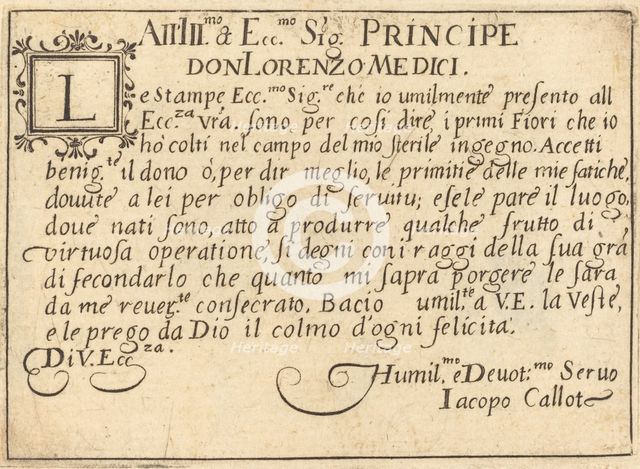 All'Ill.mo & Ecc.mo Sig. PRINCIPE
DON LORENZO MEDICI.
Le Stampe Ecc.mo Sig.re che io umilmente presento all
Ecc.za vra. sono per cosi dire, i primi Fiori che io
ho colti nel campo del mio sterile ingegno. Accetti
benig.te il dono ò, per dir meglio, le primitie delle mie fatiche,
douute a lei per obligo di seruitu; e se le pare il luogo,
doue nati sono, atto a produrre qualche frutto di
virtuosa operatione, si degni con i raggi della sua grã
di fecondarlo che quanto mi sapra porgere le sara
da me reuer.te consecrato. Bacio umil.te a V.E. la Veste,
e le prego da Dio il colmo d'ogni felicita.
Di V. Ecc.za.
Humil.mo e Deuot.mo Seruo
Iacopo Callot